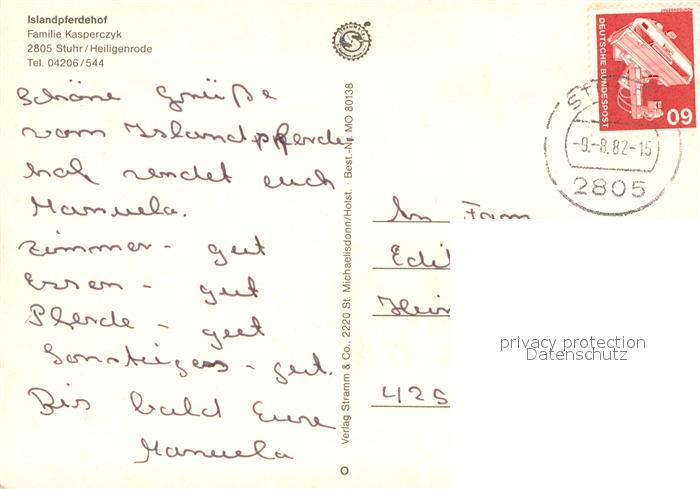 Islandpferdehof
Familie Kasperczyk
2805 Stuhr/Heiligenrode
Tel. 04206/544
Schöne Grüße
vom Islandpferde-
hof sendet euch
Manuela.
Zimmer - gut
Essen - gut
Pferde - gut
Sonstiges - gut.
Bis bald Eure
Manuela
Verlag Stramm & Co., 2220 St. Michaelisdonn/Holst. · Best.-Nr. MO 80138
DEUTSCHE BUNDESPOST
60
-9.-8.82-15
2805
An Fam
425
privacy protection
Datenschutz